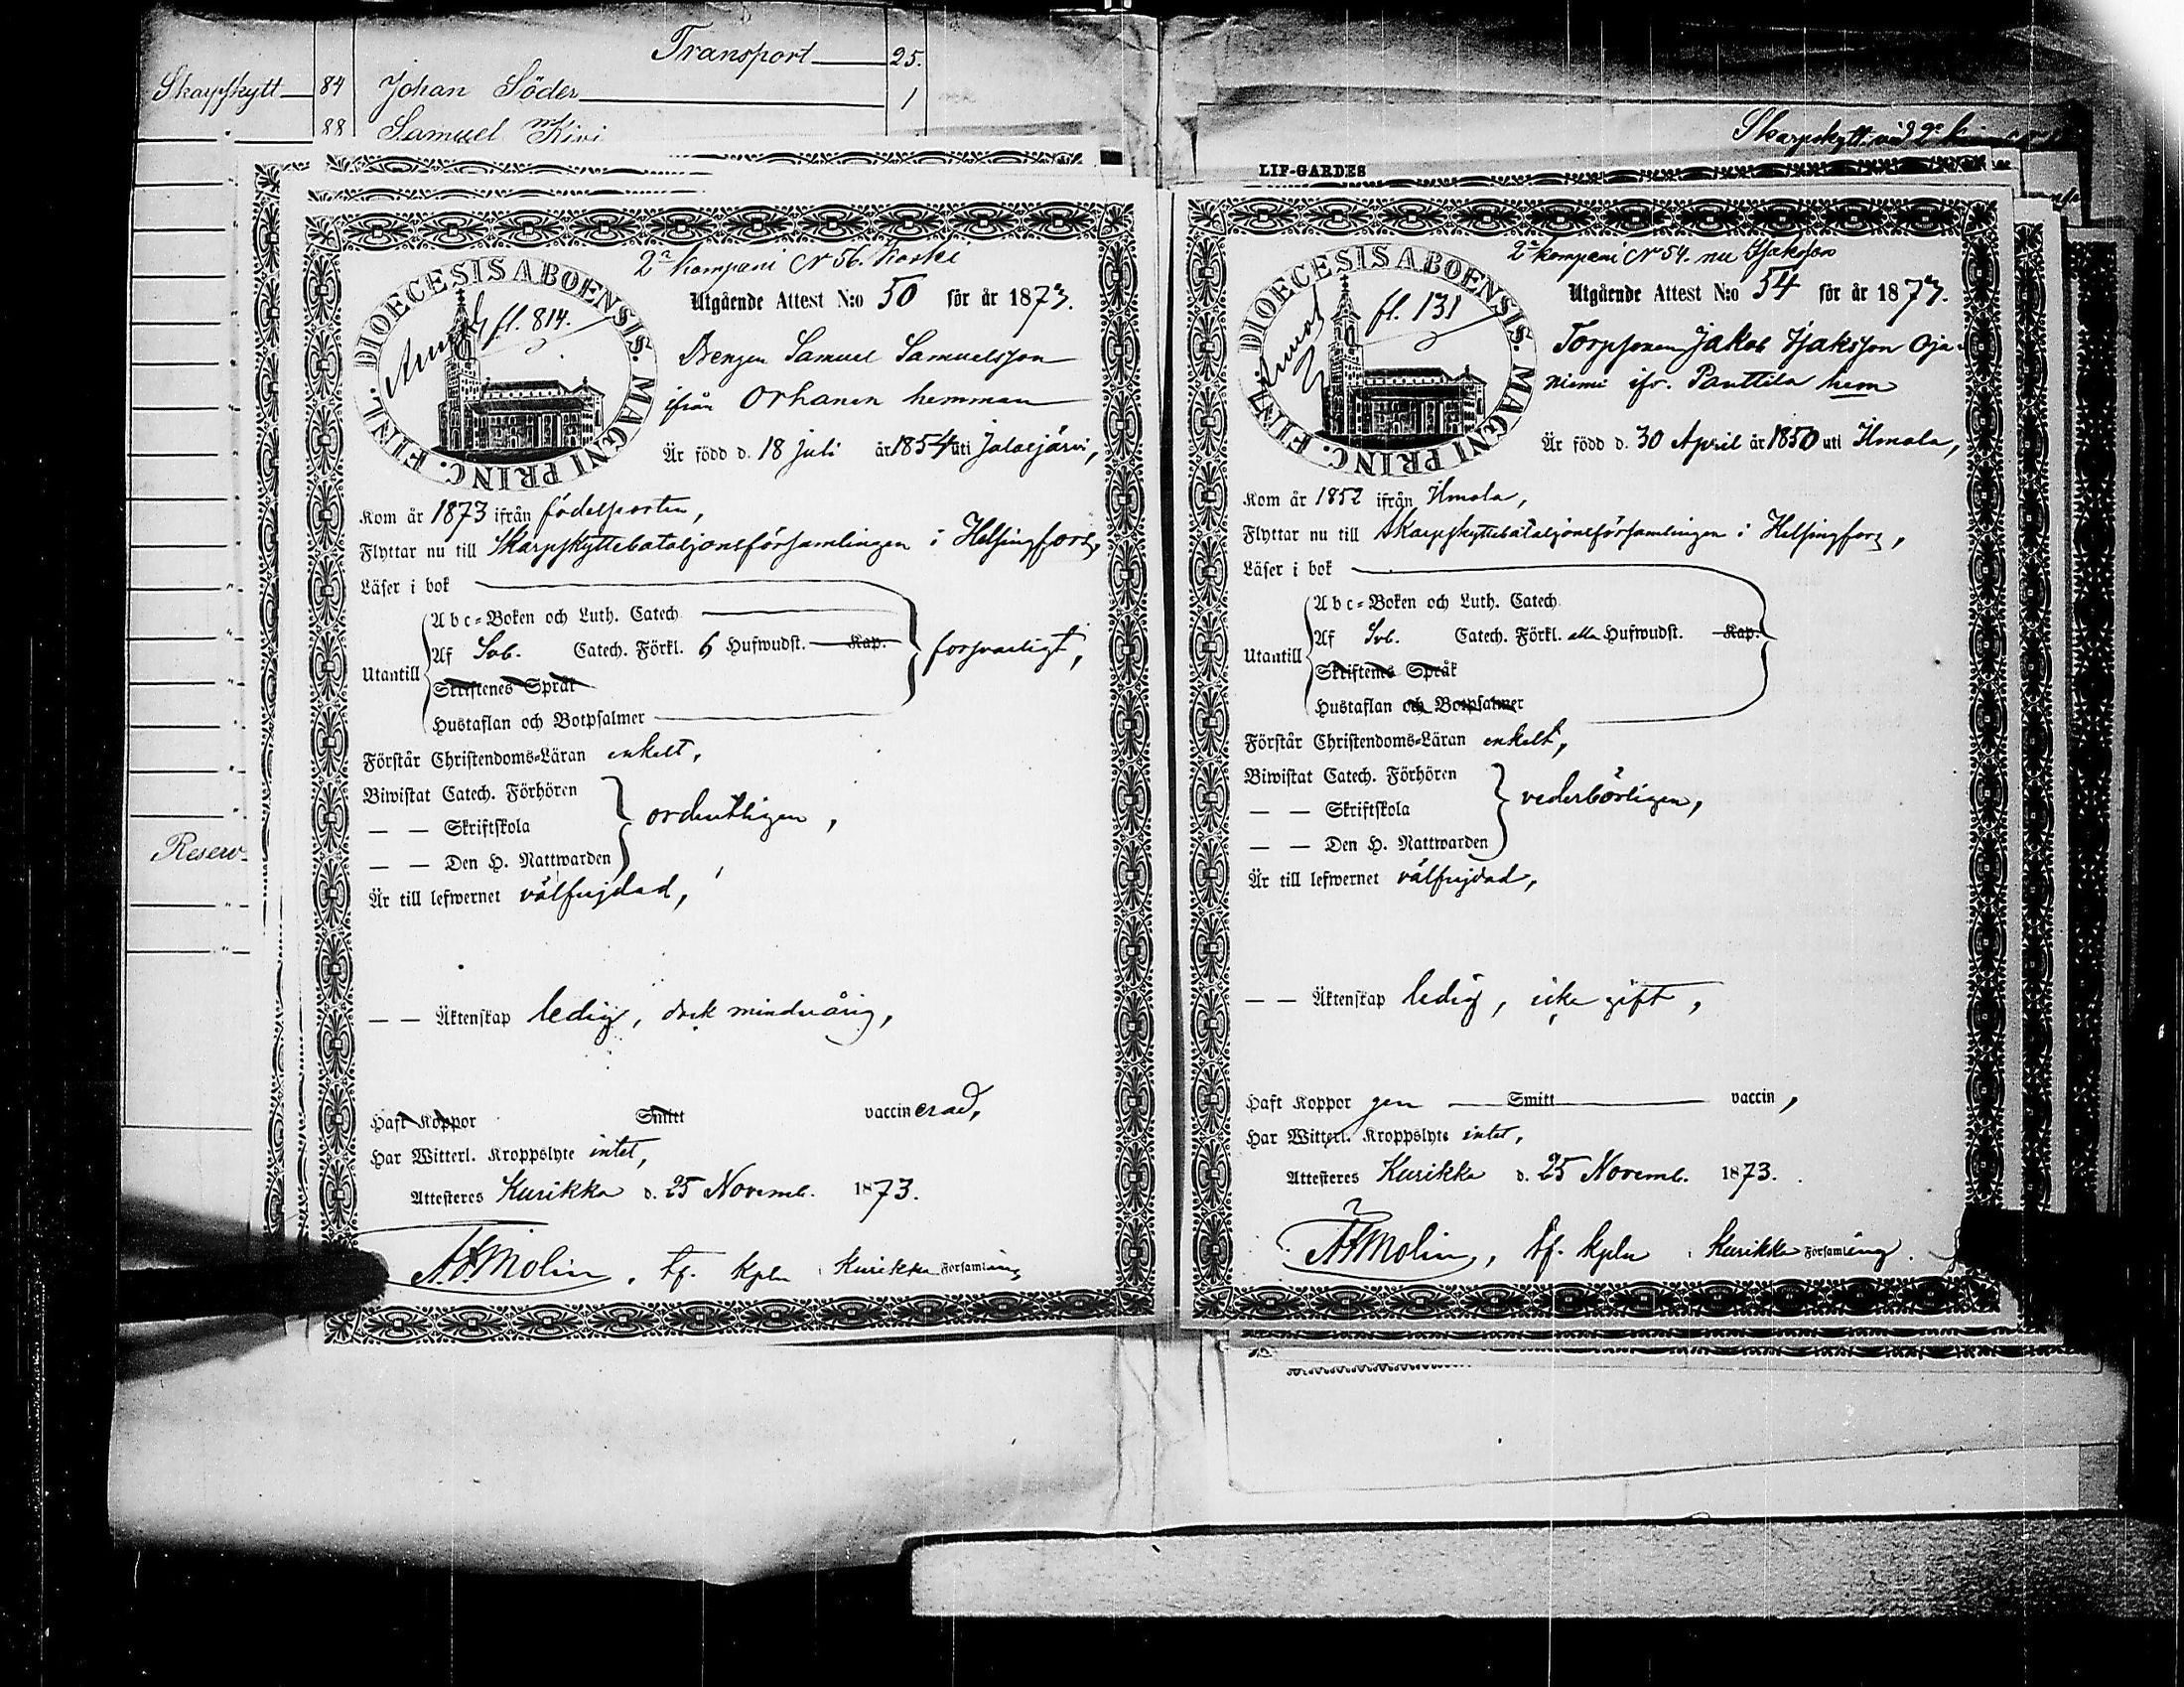 Transport 25.
Skarpskytt 84 Johan Söder 1
" 88 Samuel Kivi
Reserv
2a Kompani No 56. Koski
DIOECESIS ABOENSIS. MAGNI PRINC. FINL.
fl. 814.
Utgående Attest N:o 50 för år 1873.
Drengen Samuel Samuelsson
ifrån Orhanen hemman
Är född d. 18 juli år 1854 uti Jalasjärvi,
Kom år 1873 ifrån födelseorten,
Flyttar nu till Skarpskyttebataljonsförsamlingen i Helsingfors,
Läser i bok
Abc-Boken och Luth. Catech
Utantill Af Sveb. Catech. Förkl. 6 Hufwudst. Kap. forsvarligt,
Skriftenes Språk
Hustaflan och Botpsalmer
Förstår Christendoms-Läran enkelt,
Biwistat Catech. Förhören
— — Skriftskola ordentligen,
— — Den H. Nattwarden
Är till lefwernet välfrejdad,
— — Äktenskap ledig, dock minderårig,
Haft Koppor Smitt vaccinerad,
Har Witterl. Kroppslyte intet,
Attesteres Kurikka d. 25 Novemb. 1873.
A F Molin, tf. kpln i Kurikka Församling
Skarpskytt vid 2a
LIF-GARDES
2a kompani No 54. nu Isaksson
DIOECESIS ABOENSIS. MAGNI PRINC. FINL.
fl. 131
Utgående Attest N:o 54 för år 1873.
Torpsonen Jakob Isaksson Oja-
niemi ifr. Panttila hem
Är född d. 30 April år 1850 uti Ilmola,
Kom år 1852 ifrån Ilmola,
Flyttar nu till Skarpskyttebataljonsförsamlingen i Helsingfors,
Läser i bok
Abc-Boken och Luth. Catech
Utantill Af Svb. Catech. Förkl. alla Hufwudst. Kap.
Skriftenes Språk
Hustaflan och Botpsalmer
Förstår Christendoms-Läran enkelt,
Biwistat Catech. Förhören
— — Skriftskola vederbörligen,
— — Den H. Nattwarden
Är till lefwernet välfrejdad,
— — Äktenskap ledig, icke gift,
Haft Koppor gen Smitt vaccin,
Har Witterl. Kroppslyte intet,
Attesteres Kurikka d. 25 Novemb. 1873.
A F Molin, tf. kpln i Kurikka Församling.